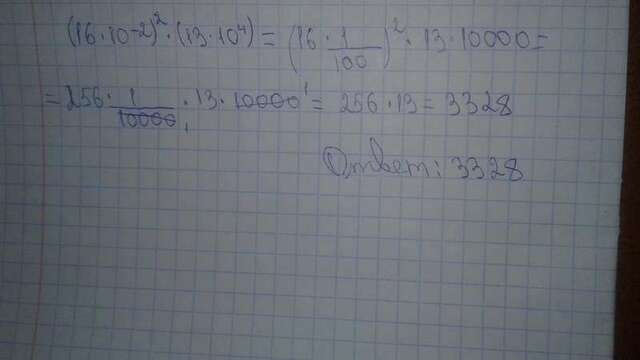 (16·10-2)²·(13·10⁴) = (16·1/100)²·13·10000=
=256·1/10000₁·13·10000¹= 256·13=3328
Ответ: 3328